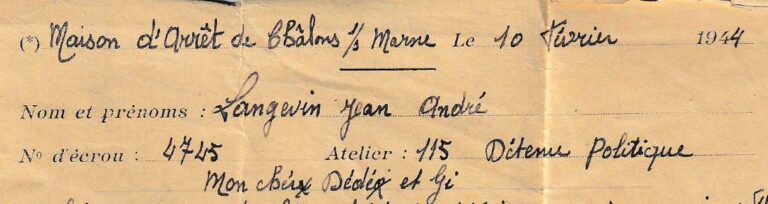 (*) Maison d'Arrêt de Châlons s/s Marne Le 10 Février 1944
Nom et prénoms : Langevin Jean André
N° d'écrou : 4745 Atelier : 115 Détenu Politique
Mon chéri Dédé et Gi